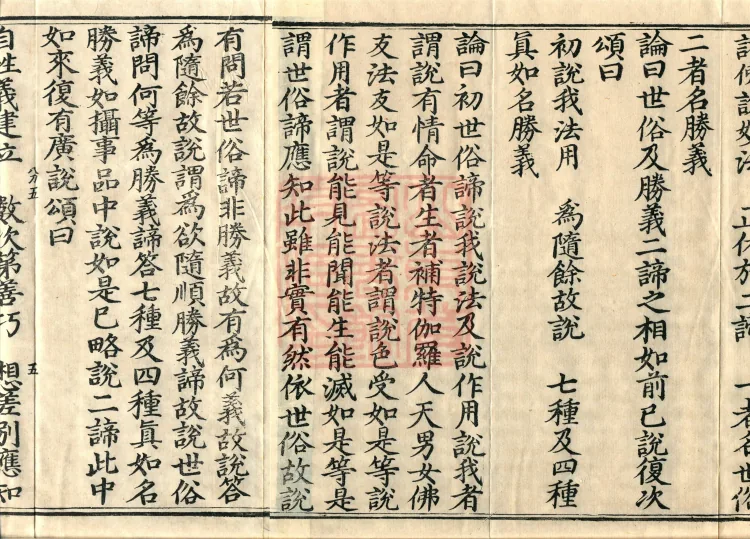 諸佛說妙法　正依於二諦　一者名世俗
二者名勝義
論曰世俗及勝義二諦之相如前已說復次
頌曰
初說我法用　爲隨餘故說　七種及四種
眞如名勝義
論曰初世俗諦說我說法及說作用說我者
謂說有情命者生者補特伽羅人天男女佛
友法友如是等說法者謂說色受如是等說
作用者謂說能見能聞能生能滅如是等是
謂世俗諦應知此雖非實有然依世俗故說
有問若世俗諦非勝義故有爲何義故說答
爲隨餘故說謂爲欲隨順勝義諦故說世俗
諦問何等爲勝義諦答七種及四種眞如名
勝義如攝事品中說如是已略說二諦此中
如來復有廣說頌曰
八分五　五
自性義建立　數次第善巧　想差別應知